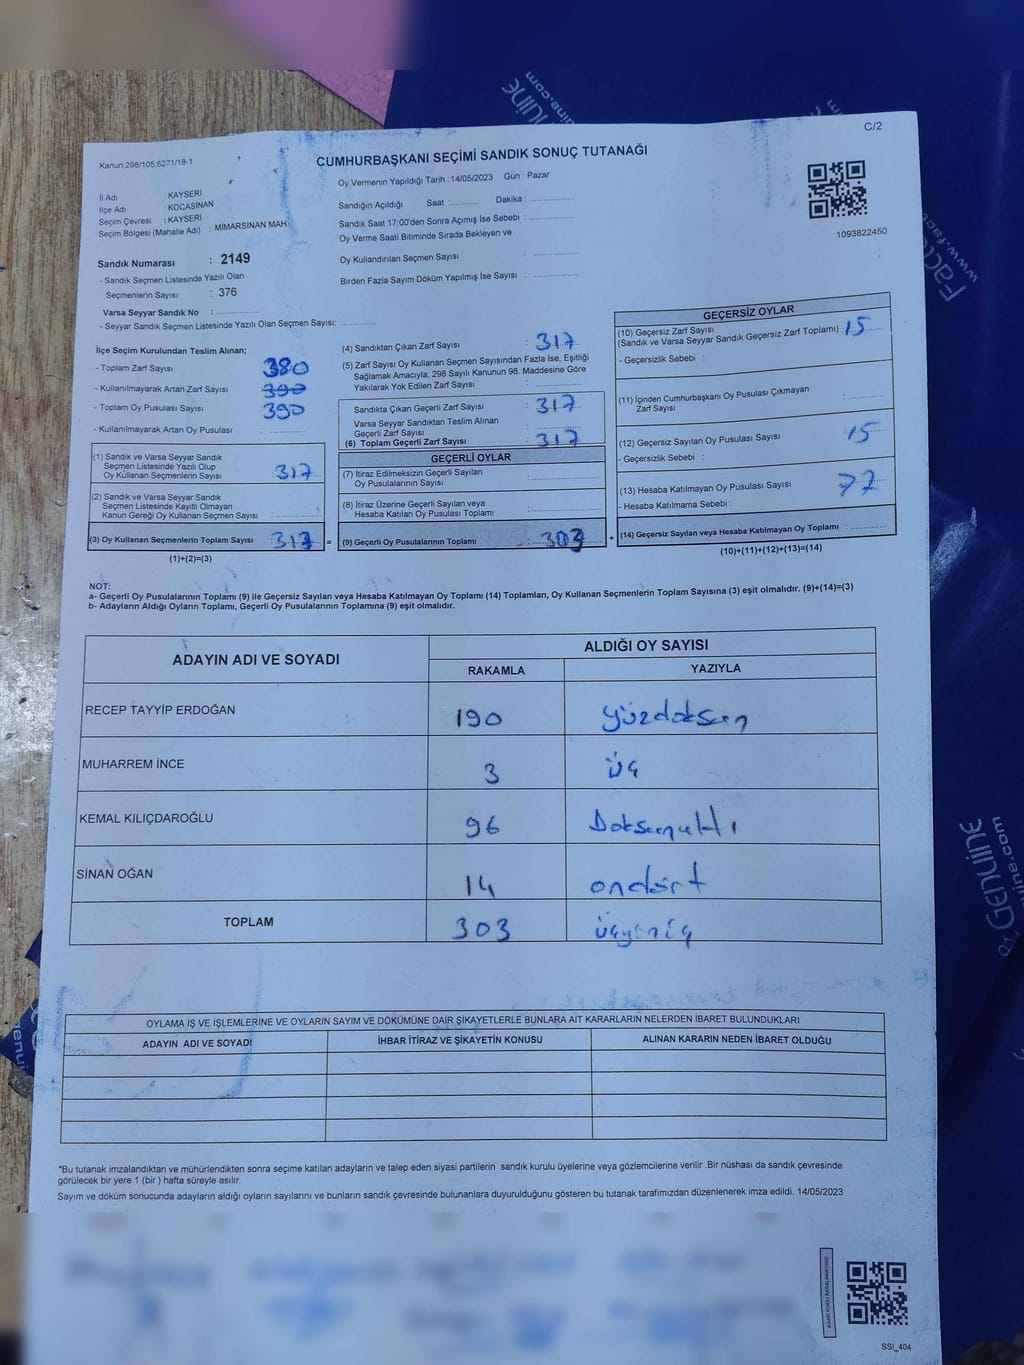 C/2
Kanun:298/105.6271/18-1
CUMHURBAŞKANI SEÇİMİ SANDIK SONUÇ TUTANAĞI
İl Adı KAYSERİ
İlçe Adı : KOCASİNAN
Seçim Çevresi : KAYSERİ
Seçim Bölgesi (Mahalle Adı) : MİMARSİNAN MAH.
Sandık Numarası : 2149
- Sandık Seçmen Listesinde Yazılı Olan
Seçmenlerin Sayısı : 376
Varsa Seyyar Sandık No :
- Seyyar Sandık Seçmen Listesinde Yazılı Olan Seçmen Sayısı:
Oy Vermenin Yapıldığı Tarih :14/05/2023 Gün : Pazar
Sandığın Açıldığı Saat : Dakika :
Sandık Saat 17:00'den Sonra Açımış İse Sebebi :
Oy Verme Saati Bitiminde Sırada Bekleyen ve
Oy Kullandırılan Seçmen Sayısı :
Birden Fazla Sayım Döküm Yapılmış İse Sayısı :
1093822450
İlçe Seçim Kurulundan Teslim Alınan;
- Toplam Zarf Sayısı : 380
- Kullanılmayarak Artan Zarf Sayısı : 390
- Toplam Oy Pusulası Sayısı : 390
- Kullanılmayarak Artan Oy Pusulası :
(1) Sandık ve Varsa Seyyar Sandık
Seçmen Listesinde Yazılı Olup
Oy Kullanan Seçmenlerin Sayısı : 317
(2) Sandık ve Varsa Seyyar Sandık
Seçmen Listesinde Kayıtlı Olmayan
Kanun Gereği Oy Kullanan Seçmen Sayısı :
(3) Oy Kullanan Seçmenlerin Toplam Sayısı : 317 =
(1)+(2)=(3)
(4) Sandıktan Çıkan Zarf Sayısı : 317
(5) Zarf Sayısı Oy Kullanan Seçmen Sayısından Fazla İse, Eşitliği
Sağlamak Amacıyla; 298 Sayılı Kanunun 98. Maddesine Göre
Yakılarak Yok Edilen Zarf Sayısı :
Sandıkta Çıkan Geçerli Zarf Sayısı : 317
Varsa Seyyar Sandıktan Teslim Alınan
Geçerli Zarf Sayısı :
(6) Toplam Geçerli Zarf Sayısı : 317
GEÇERLİ OYLAR
(7) İtiraz Edilmeksizin Geçerli Sayılan
Oy Pusulalarının Sayısı :
(8) İtiraz Üzerine Geçerli Sayılan veya
Hesaba Katılan Oy Pusulası Toplamı :
(9) Geçerli Oy Pusulalarının Toplamı : 303 +
GEÇERSİZ OYLAR
(10) Geçersiz Zarf Sayısı
(Sandık ve Varsa Seyyar Sandık Geçersiz Zarf Toplamı) : 15
- Geçersizlik Sebebi :
(11) İçinden Cumhurbaşkanı Oy Pusulası Çıkmayan
Zarf Sayısı :
(12) Geçersiz Sayılan Oy Pusulası Sayısı : 15
- Geçersizlik Sebebi :
(13) Hesaba Katılmayan Oy Pusulası Sayısı : 77
- Hesaba Katılmama Sebebi :
(14) Geçersiz Sayılan veya Hesaba Katılmayan Oy Toplamı :
(10)+(11)+(12)+(13)=(14)
NOT:
a- Geçerli Oy Pusulalarının Toplamı (9) ile Geçersiz Sayılan veya Hesaba Katılmayan Oy Toplamı (14) Toplamları, Oy Kullanan Seçmenlerin Toplam Sayısına (3) eşit olmalıdır. (9)+(14)=(3)
b- Adayların Aldığı Oyların Toplamı, Geçerli Oy Pusulalarının Toplamına (9) eşit olmalıdır.
ADAYIN ADI VE SOYADI ALDIĞI OY SAYISI
RAKAMLA YAZIYLA
RECEP TAYYİP ERDOĞAN 190 yüzdoksan
MUHARREM İNCE 3 üç
KEMAL KILIÇDAROĞLU 96 Doksanaltı
SİNAN OĞAN 14 ondört
TOPLAM 303 üçyüzüç
OYLAMA İŞ VE İŞLEMLERİNE VE OYLARIN SAYIM VE DÖKÜMÜNE DAİR ŞİKAYETLERLE BUNLARA AİT KARARLARIN NELERDEN İBARET BULUNDUKLARI
ADAYIN ADI VE SOYADI İHBAR İTİRAZ VE ŞİKAYETİN KONUSU ALINAN KARARIN NEDEN İBARET OLDUĞU
*Bu tutanak imzalandıktan ve mühürlendikten sonra seçime katılan adayların ve talep eden siyasi partilerin sandık kurulu üyelerine veya gözlemcilerine verilir .Bir nüshası da sandık çevresinde
görülecek bir yere 1 (bir ) hafta süreyle asılır.
Sayım ve döküm sonucunda adayların aldığı oyların sayılarını ve bunların sandık çevresinde bulunanlara duyurulduğunu gösteren bu tutanak tarafımızdan düzenlenerek imza edildi. 14/05/2023
SSI_404